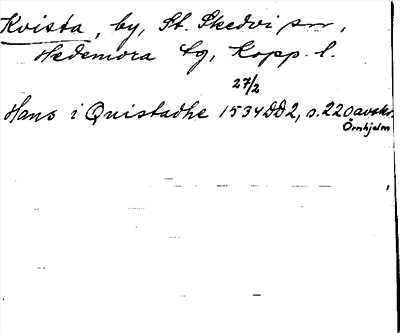 Kvista, by, St. Skedvi sn,
Hedemora tg, Kopp. l.
27/2
Hans i Quistadhe 1534 DD2, s. 220 avskr.
Örnhjelm